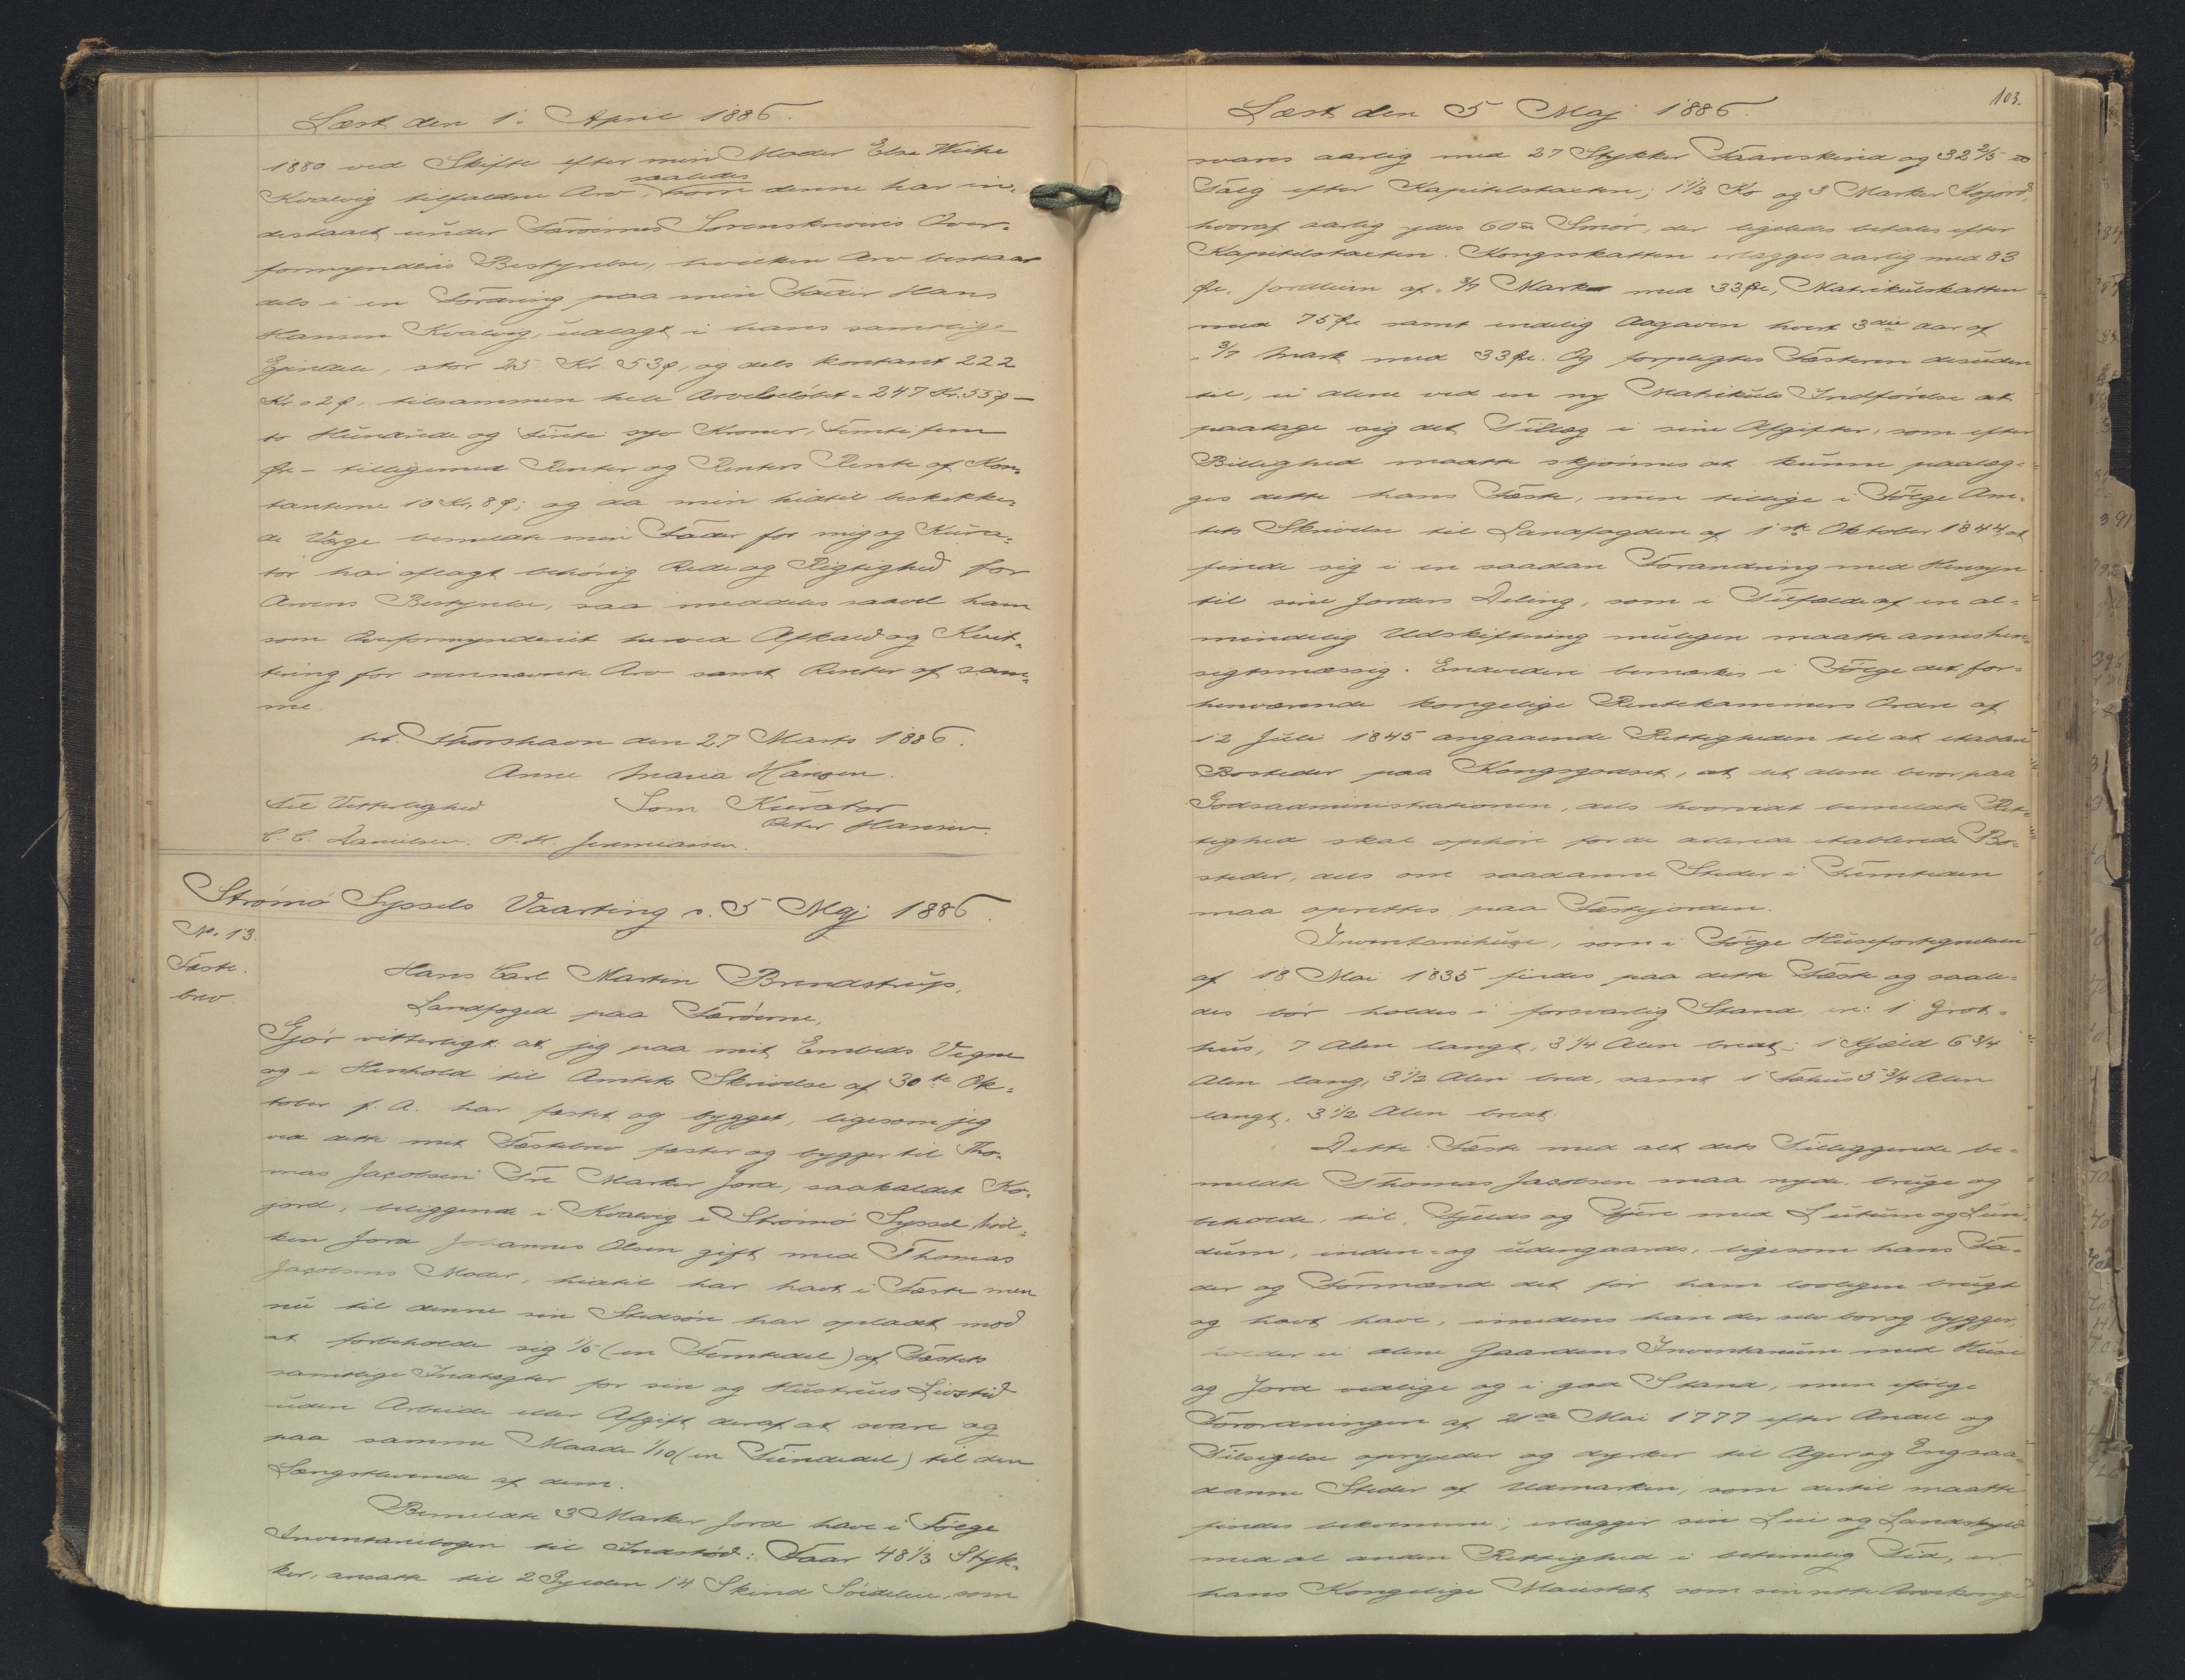 Læst den 1. April 1886.
1880 ved Skifte efter min Moder Else Weihe
saaledes
Kvalvig tilfaldne Arv, som denne har in-
destaaet under Færøernes Sorenskriveris Over-
formynderis Bestyrelse, hvilken Arv bestaar
dels i en Fordring paa min Fader Hans
Hansen Kvalvig, udlagt i hans samtlige
Ejendele, stor 25 Kr. 53 Ø, og dels kontant 222
Kr. 02 Ø, tilsammen hele Arvebeløbet = 247 Kr. 55 Ø —
to Hundrede og Førti syv Kroner, Femti fem
Øre — tilligemed Renter og Renters Rente af Kon-
tanterne 10 Kr. 8 Ø; og da min hidtil beskikke-
de Værge bemeldte min Fader for mig og Kura-
tor har aflagt behørig Rede og Rigtighed for
Arvens Bestyrelse, saa meddeles saavel ham
som Overformynderiet herved Afkald og Kvit-
tering for ovennævnte Arv samt Renter af sam-
me.
pt. Thorshavn den 27 Marts 1886.
Anne Maria Hansen.
Til Vitterlighed Som Kurator
Peter Hansen.
C. C. Danielsen. P. H. Jeremiassen.
Strømø Syssels Vaarting d. 5 Maj 1886.
No. 13.
Fæste-
brev.
Hans Carl Martin Brendstrup,
Landfoged paa Færøerne,
Gjør vitterligt: at jeg paa mit Embeds Vegne
og i Henhold til Amtets Skrivelse af 30te Ok-
tober f. A. har fæstet og bygget, ligesom jeg
ved dette mit Fæstebrev fæster og bygger til Tho-
mas Jacobsen Tre Marker Jord, saakaldet Ko-
jord, beliggende i Kvalvig i Strømø Syssel hvil-
ken Jord Johannes Olsen gift med Thomas
Jacobsens Moder, hidtil har havt i Fæste men
nu til denne sin Stedsøn har opladt mod
at forbeholde sig 1/5 (en Femtedel) af Fæstets
samtlige Indtægter for sin og Hustrues Livstid
uden Arbeide eller Afgift deraf at svare og
paa samme Maade 1/10 (en Tiendedel) til den
Længstlevende af dem.
Bemeldte 3 Marker Jord have i Følge
Inventariebogen til Indstød: Faar 48 1/3 Styk-
ker, ansatte til 2 Gylden 14 Skind Søideleie, som
103.
Læst den 5 Maj 1886.
svares aarlig med 27 Stykker Faareskind og 32 2/5 ℔
Talg efter Kapitelstaxten; 1 1/3 Ko og 3 Marker Kojord,
hvoraf aarlig ydes 60 ℔ Smør, der ligeledes betales efter
Kapitelstaxten. Kongsskatten erlægges aarlig med 83
Øre. Jordleien af 3/7 Mark med 33 Øre, Matrikulskatten
med 75 Øre samt endelig Aagaven hvert 3die Aar af
3/7 Mark med 33 Øre. Og forpligtes Fæsteren desuden
til, ei alene ved en ny Matrikuls Indførelse at
paatage sig det Tillæg i sine Afgifter, som efter
Billighed maatte skjønnes at kunne paalæg-
ges dette hans Fæste, men tillige i Følge Am-
tets Skrivelse til Landfogden af 1ste Oktober 1844, at
finde sig i en saadan Forandring med Hensyn
til sine Jorders Deling, som i Tilfælde af en al-
mindelig Udskiftning muligen maatte anses hen-
sigtsmæssig. Endvidere bemærkes i Følge det for-
henværende kongelige Rentekammers Ordre af
12 Juli 1845 angaaende Rettigheden til at etablere
Bosteder paa Kongsgodset, at det alene beror paa
Godsadministrationen, dels hvorvidt bemeldte Ret-
tighed skal ophøre for de allerede etablerede Bo-
steder, dels om saadanne Steder i Fremtiden
maa oprettes paa Fæstejorden.
Inventariehuse, som i Følge Husefortegnelsen
af 18 Mai 1835 findes paa dette Fæste og saale-
des bør holdes i forsvarlig Stand, ere: 1 Grot-
hus, 7 Alen langt, 3 1/4 Alen bredt; 1 Hjæld 6 3/4
Alen lang, 3 1/2 Alen bred, samt 1 Fæhus 5 3/4 Alen
langt, 3 1/2 Alen bredt.
Dette Fæste med alt dets Tilliggende be-
meldte Thomas Jacobsen maa nyde, bruge og
beholde, til Fjelds og Fjære med Lutum og Lun-
dum, inden- og udengaards, ligesom hans Fa-
der og Formænd det før ham lovligen brugt
og havt have, imedens han der selv bor og bygger,
holder ei alene Gaardens Inventarium med Huse
og Jord vedlige og i god Stand, men ifølge
Forordningen af 21de Mai 1777 efter Andel og
Tilsigelse oprydder og dyrker til Ager og Eng saa-
danne Steder af Udmarken, som dertil maatte
findes bekvemme; erlægger sin Leie og Landskyld
med al anden Rettighed i betimelig Tid, er
hans Kongelige Maiestæt som sin rette Arvekonge